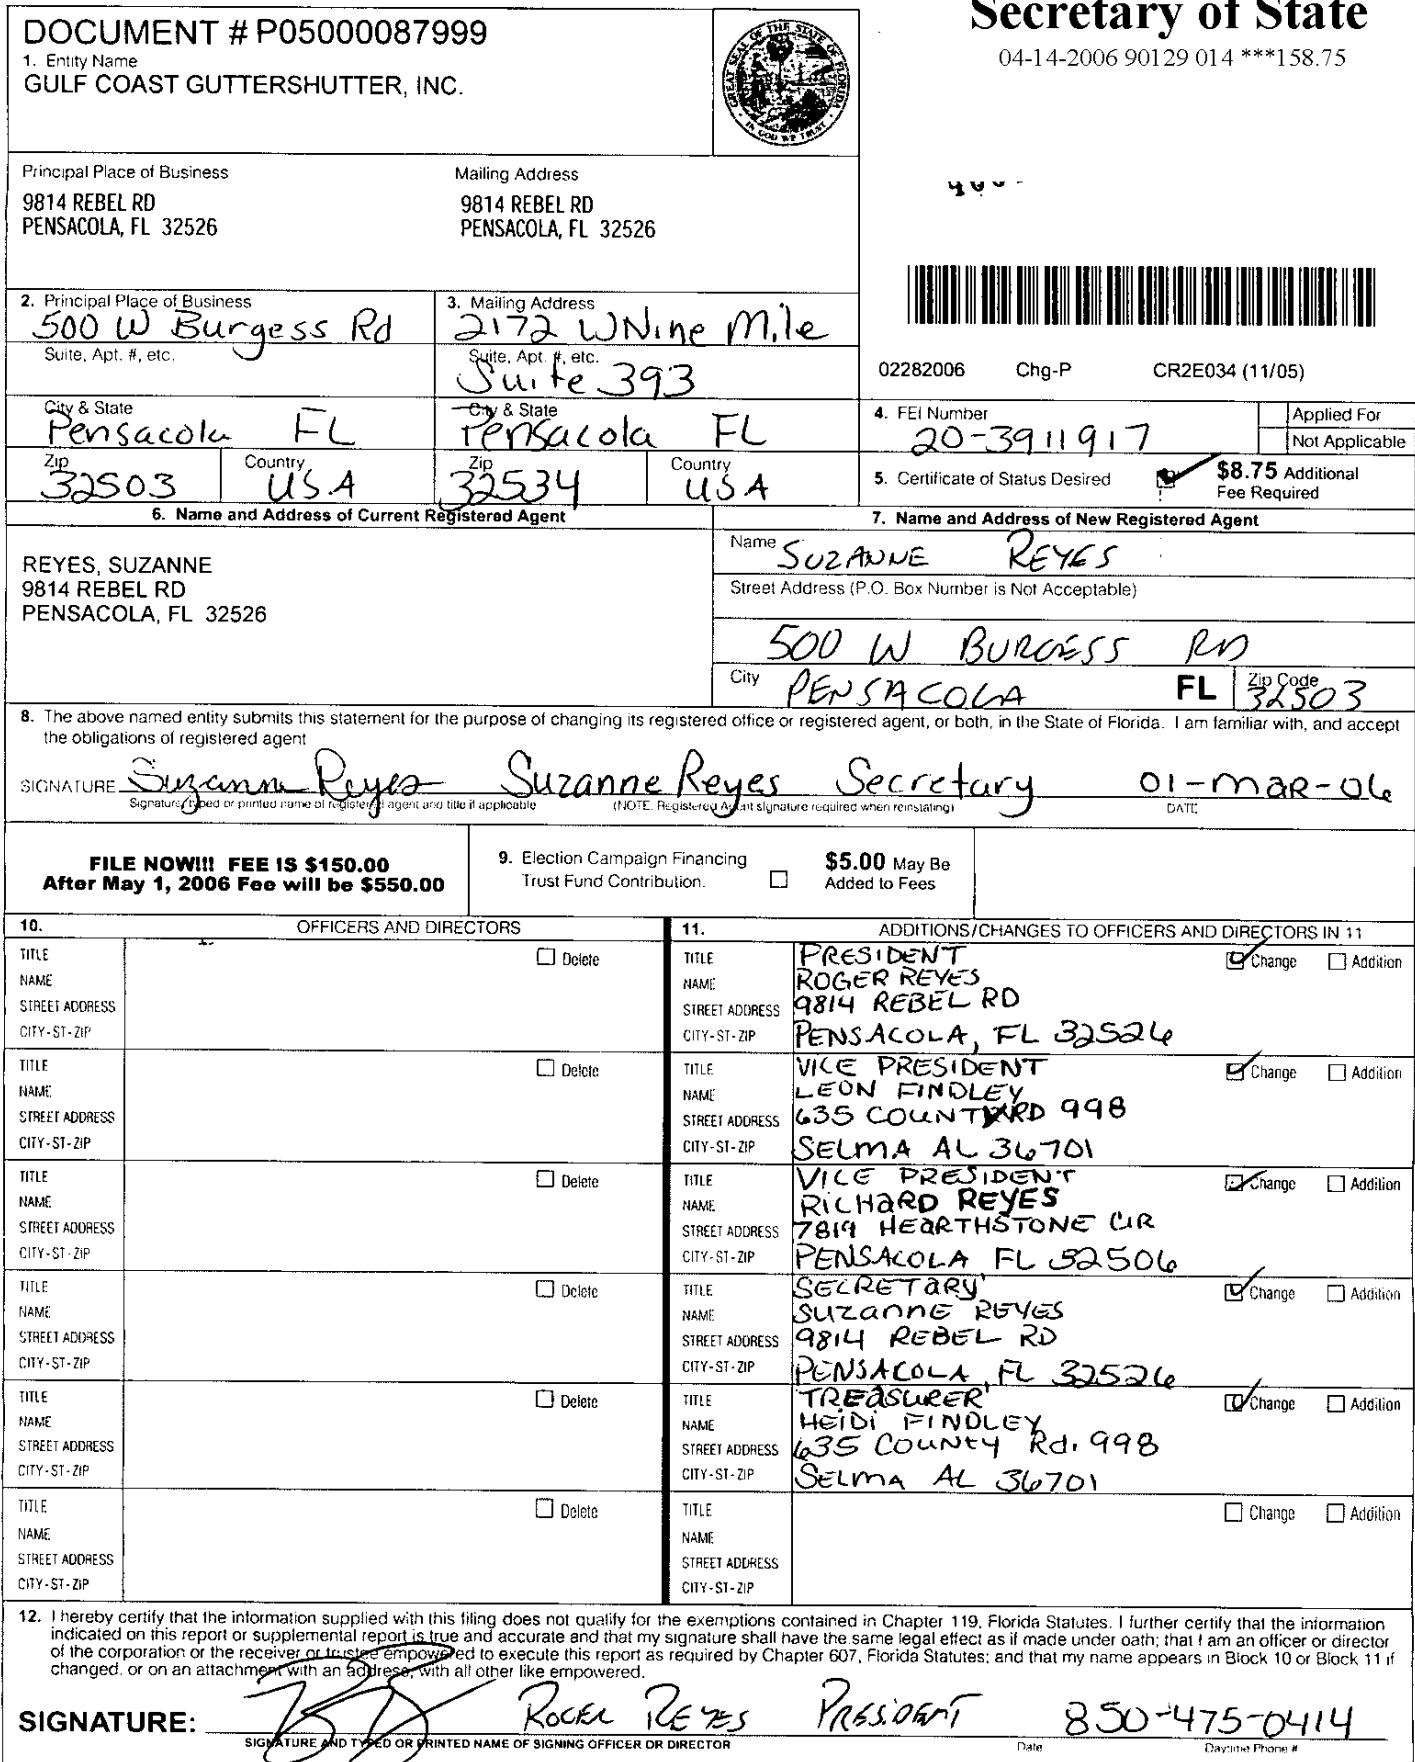 Secretary of State
04-14-2006 90129 014 ***158.75
DOCUMENT # P05000087999
1. Entity Name
GULF COAST GUTTERSHUTTER, INC.
GREAT SEAL OF THE STATE OF FLORIDA
IN GOD WE TRUST
Principal Place of Business
9814 REBEL RD
PENSACOLA, FL 32526
Mailing Address
9814 REBEL RD
PENSACOLA, FL 32526
2. Principal Place of Business
500 W Burgess Rd
Suite, Apt. #, etc.
City & State
Pensacola FL
Zip Country
32503 USA
3. Mailing Address
2172 W Nine Mile
Suite, Apt. #, etc.
Suite 393
City & State
Pensacola FL
Zip Country
32534 USA
02282006 Chg-P CR2E034 (11/05)
4. FEI Number
20-3911917
Applied For
Not Applicable
5. Certificate of Status Desired
$8.75 Additional
Fee Required
6. Name and Address of Current Registered Agent
REYES, SUZANNE
9814 REBEL RD
PENSACOLA, FL 32526
7. Name and Address of New Registered Agent
Name SUZANNE REYES
Street Address (P.O. Box Number is Not Acceptable)
500 W BURGESS RD
City PENSACOLA FL Zip Code 32503
8. The above named entity submits this statement for the purpose of changing its registered office or registered agent, or both, in the State of Florida. I am familiar with, and accept
the obligations of registered agent
SIGNATURE Suzanne Reyes Suzanne Reyes Secretary 01-MAR-06
Signature, typed or printed name of registered agent and title if applicable (NOTE. Registered Agent signature required when reinstating) DATE
FILE NOW!!! FEE IS $150.00
After May 1, 2006 Fee will be $550.00
9. Election Campaign Financing
Trust Fund Contribution.
$5.00 May Be
Added to Fees
10. OFFICERS AND DIRECTORS
TITLE Delete
NAME
STREET ADDRESS
CITY-ST-ZIP
TITLE Delete
NAME
STREET ADDRESS
CITY-ST-ZIP
TITLE Delete
NAME
STREET ADDRESS
CITY-ST-ZIP
TITLE Delete
NAME
STREET ADDRESS
CITY-ST-ZIP
TITLE Delete
NAME
STREET ADDRESS
CITY-ST-ZIP
TITLE Delete
NAME
STREET ADDRESS
CITY-ST-ZIP
11. ADDITIONS/CHANGES TO OFFICERS AND DIRECTORS IN 11
TITLE PRESIDENT Change Addition
NAME ROGER REYES
STREET ADDRESS 9814 REBEL RD
CITY-ST-ZIP PENSACOLA, FL 32526
TITLE VICE PRESIDENT Change Addition
NAME LEON FINDLEY
STREET ADDRESS 635 COUNTY RD 998
CITY-ST-ZIP SELMA AL 36701
TITLE VICE PRESIDENT Change Addition
NAME RICHARD REYES
STREET ADDRESS 7819 HEARTHSTONE CIR
CITY-ST-ZIP PENSACOLA FL 32506
TITLE SECRETARY Change Addition
NAME SUZANNE REYES
STREET ADDRESS 9814 REBEL RD
CITY-ST-ZIP PENSACOLA, FL 32526
TITLE TREASURER Change Addition
NAME HEIDI FINDLEY
STREET ADDRESS 635 COUNTY Rd. 998
CITY-ST-ZIP SELMA AL 36701
TITLE Change Addition
NAME
STREET ADDRESS
CITY-ST-ZIP
12. I hereby certify that the information supplied with this filing does not qualify for the exemptions contained in Chapter 119, Florida Statutes. I further certify that the information
indicated on this report or supplemental report is true and accurate and that my signature shall have the same legal effect as if made under oath; that I am an officer or director
of the corporation or the receiver or trustee empowered to execute this report as required by Chapter 607, Florida Statutes; and that my name appears in Block 10 or Block 11 if
changed, or on an attachment with an address, with all other like empowered.
SIGNATURE: ROGER REYES PRESIDENT 850-475-0414
SIGNATURE AND TYPED OR PRINTED NAME OF SIGNING OFFICER OR DIRECTOR Date Daytime Phone #